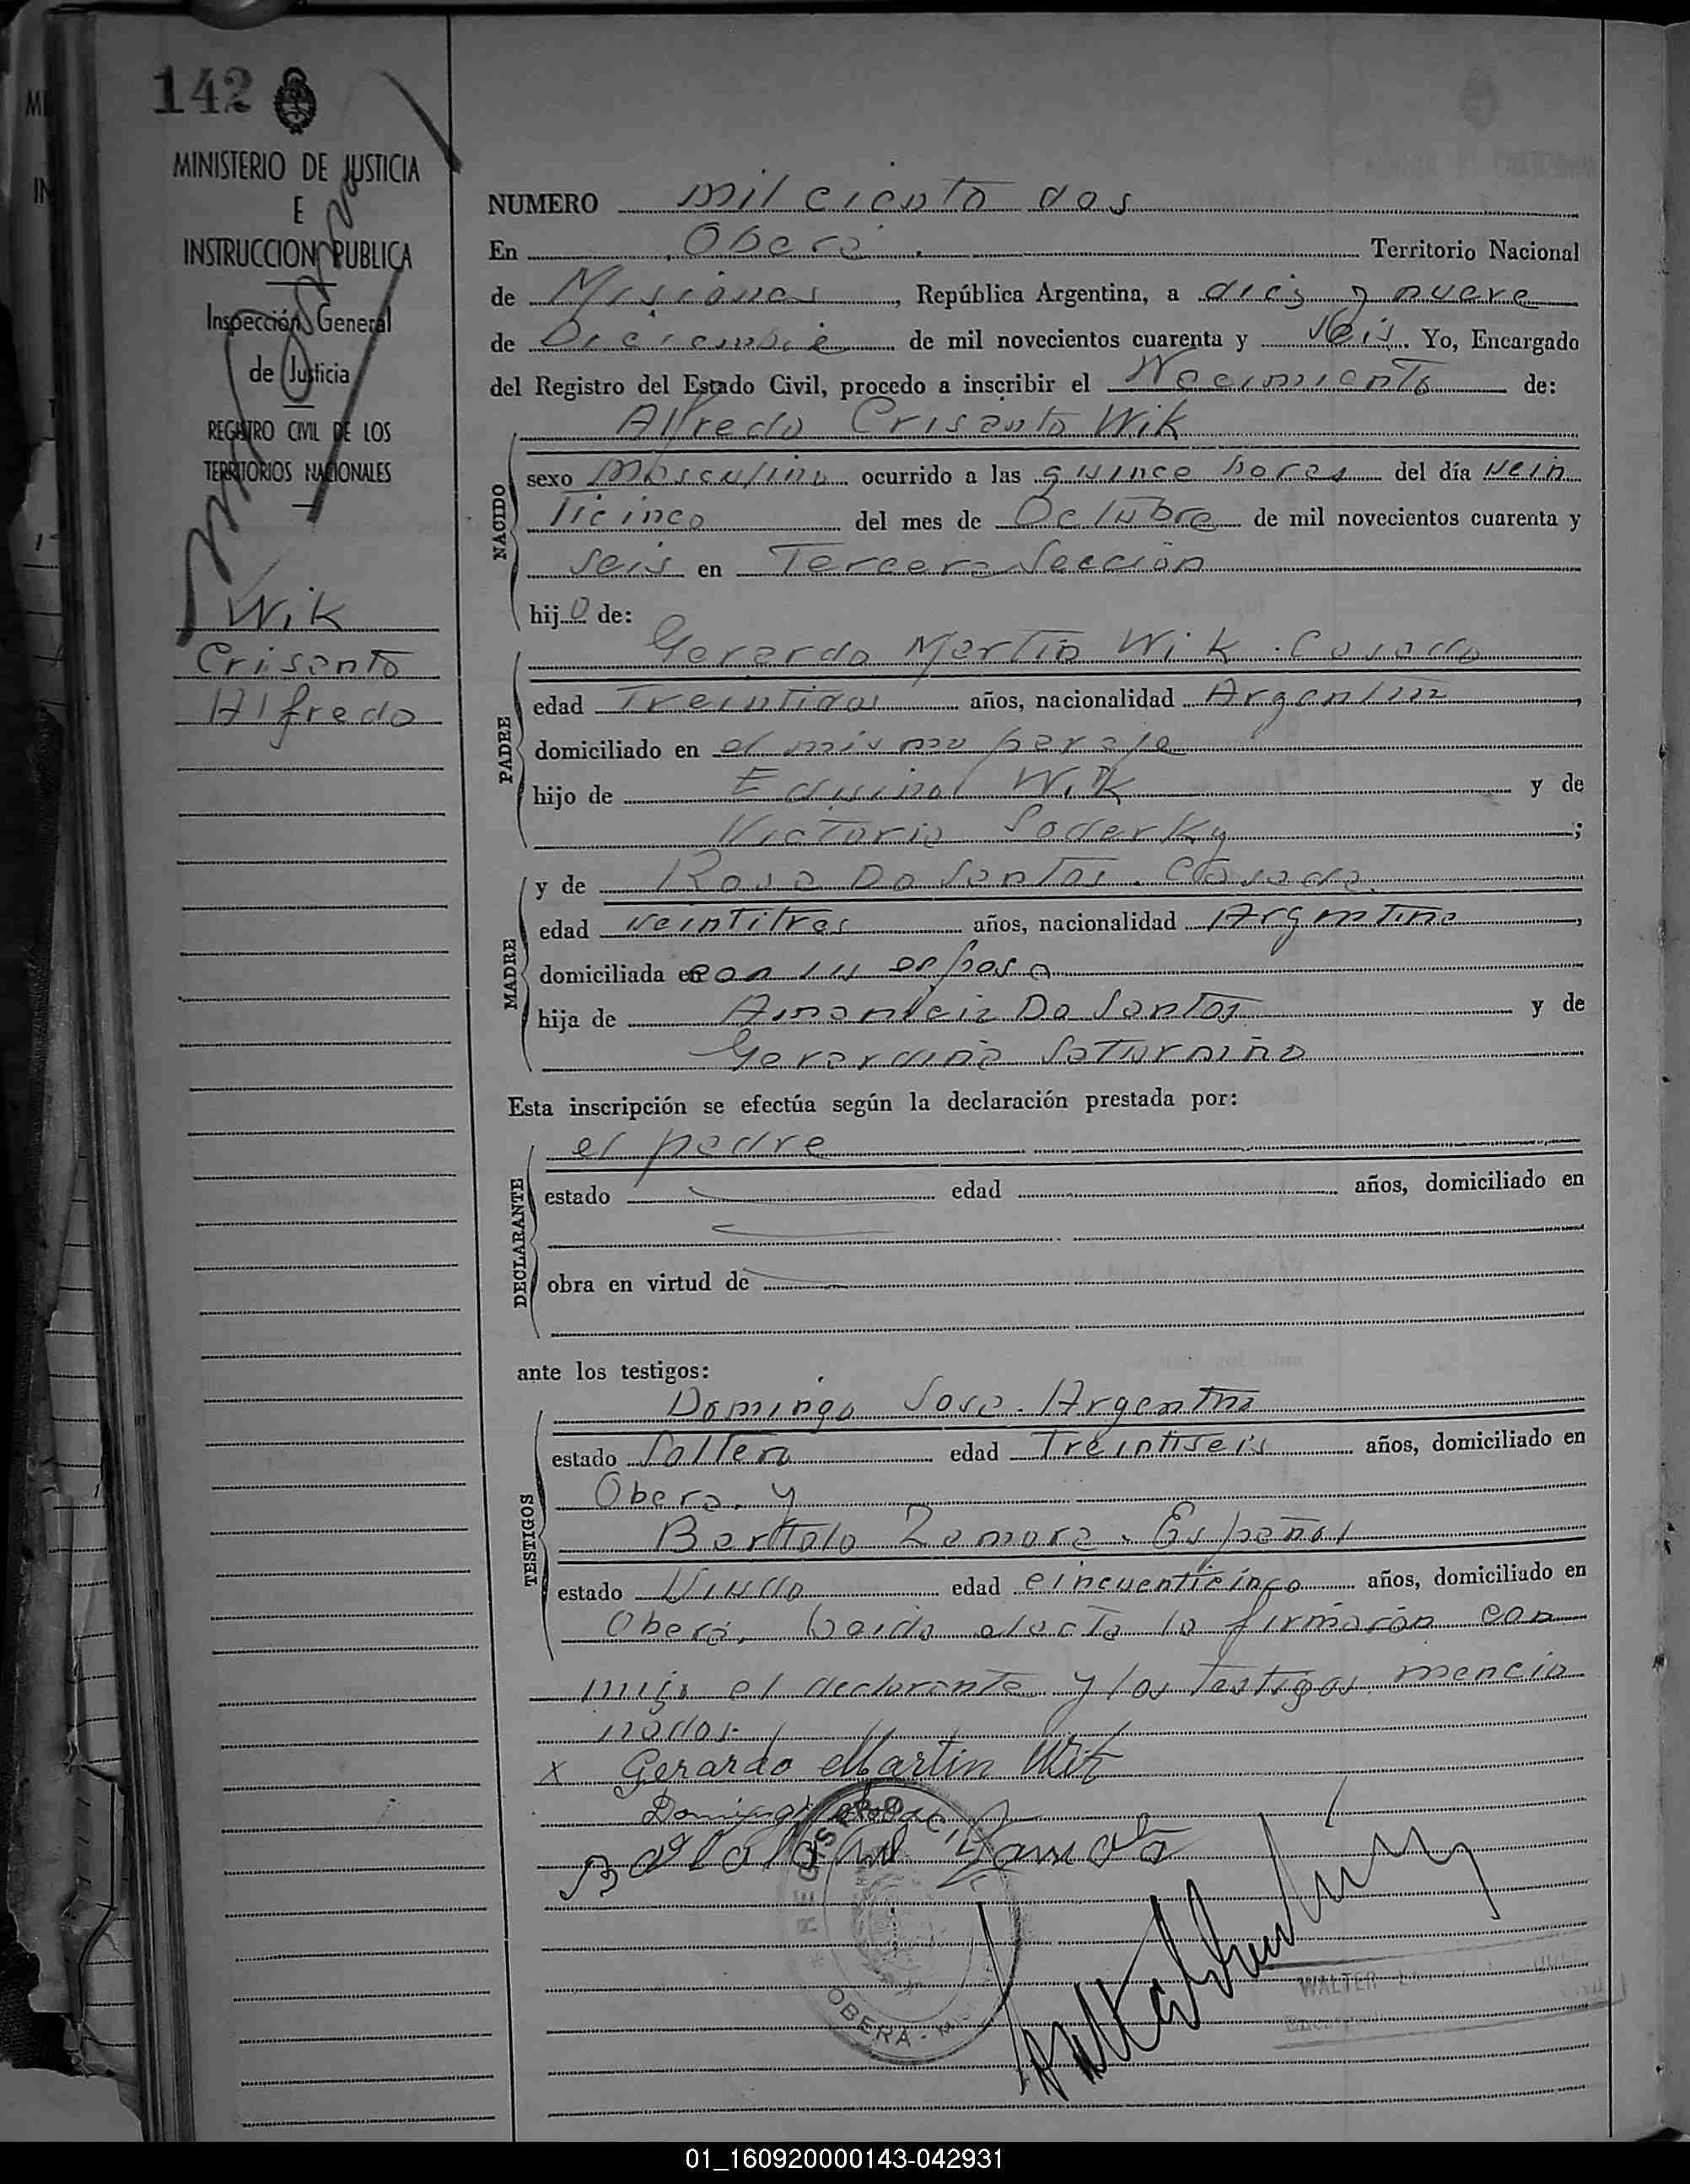 142
MINISTERIO DE JUSTICIA
E
INSTRUCCION PUBLICA
Inspección General
de Justicia
REGISTRO CIVIL DE LOS
TERRITORIOS NACIONALES
Wik
Crisanto
Alfredo
NUMERO mil ciento dos
En Oberá. Territorio Nacional
de Misiones, República Argentina, a diez y nueve
de Diciembre de mil novecientos cuarenta y seis. Yo, Encargado
del Registro del Estado Civil, procedo a inscribir el Nacimiento de:
Alfredo Crisanto Wik
NACIDO
sexo Masculino ocurrido a las quince horas del día vein
ticinco del mes de Octubre de mil novecientos cuarenta y
seis en Tercera Sección
hijo de:
PADRE
Gerardo Martin Wik. Casado
edad Treintidos años, nacionalidad Argentina,
domiciliado en el mismo paraje
hijo de Wik y de
Victoria Soderky;
MADRE
y de Rosa Do Santos. Casada.
edad veintitres años, nacionalidad Argentina,
domiciliada en con su esposo
hija de Do Santos y de
Gerardina Saturnino
Esta inscripción se efectúa según la declaración prestada por:
DECLARANTE
el padre
estado edad años, domiciliado en
obra en virtud de
ante los testigos:
TESTIGOS
Domingo Sosa. Argentino
estado Soltero edad Treintiseis años, domiciliado en
Obera. y
Bartolo Zamora. Español
estado Viudo edad cincuenticinco años, domiciliado en
Oberá. Leida el acta la firmarón con
migo el declarante y los testigos mencio
nados.
x Gerardo Martin Wik
Domingo Sosa
Bartolo Zamora
REGISTRO
OBERA - M
WALTER